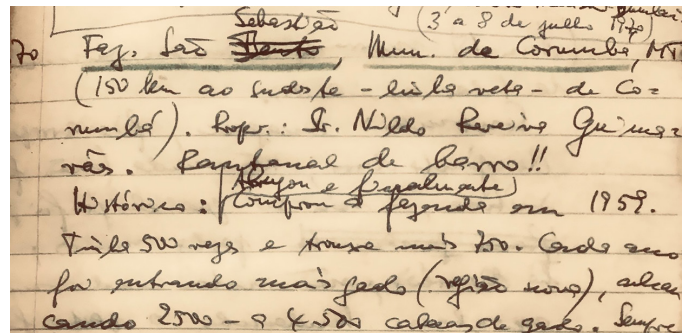 Sebastião
(3 a 8 de julho 1970)
70 Faz. São Bento, Mun. de Corumbá, MT
(150 km ao sudeste - linha reta - de Co=
rumbá). Propr.: Sr. Nildo Pereira Guima=
rães. Pantanal de barro!!
Alugou e finalmente
Histórico: Comprou a fazenda em 1959.
Tinha 500 rezes e trouxe mais 700. Cada ano
foi entrando mais gado (região nova),
cando 2500 - a 4.500 cabeças de gado. Sempre